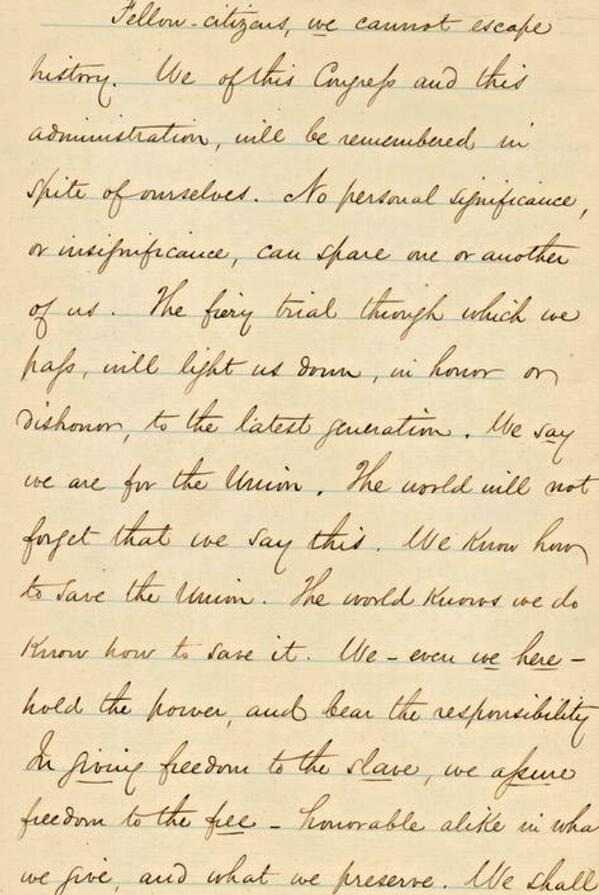 Fellow-citizens, we cannot escape
history. We of this Congress and this
administration, will be remembered in
spite of ourselves. No personal significance,
or insignificance, can spare one or another
of us. The fiery trial through which we
pass, will light us down, in honor or
dishonor, to the latest generation. We say
we are for the Union. The world will not
forget that we say this. We know how
to save the Union. The world knows we do
know how to save it. We - even we here -
hold the power, and bear the responsibility
In giving freedom to the slave, we assure
freedom to the free - honorable alike in wha
we give, and what we preserve. We shall